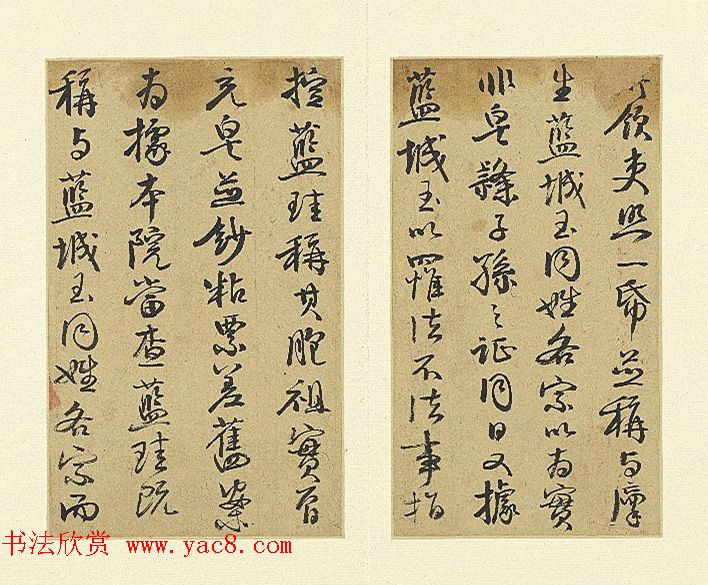 領吏照一帋並稱与廩
生藍城玉同姓各宗以为實
非皂隸子孫之証同日又據
藍城玉以罹法不法事指
控藍珪稱其胞祖實曾
充皂並鈔粘票差舊案
为據本院當查藍珪既
稱与藍城玉同姓各宗而
书法欣赏 www.yac8.com